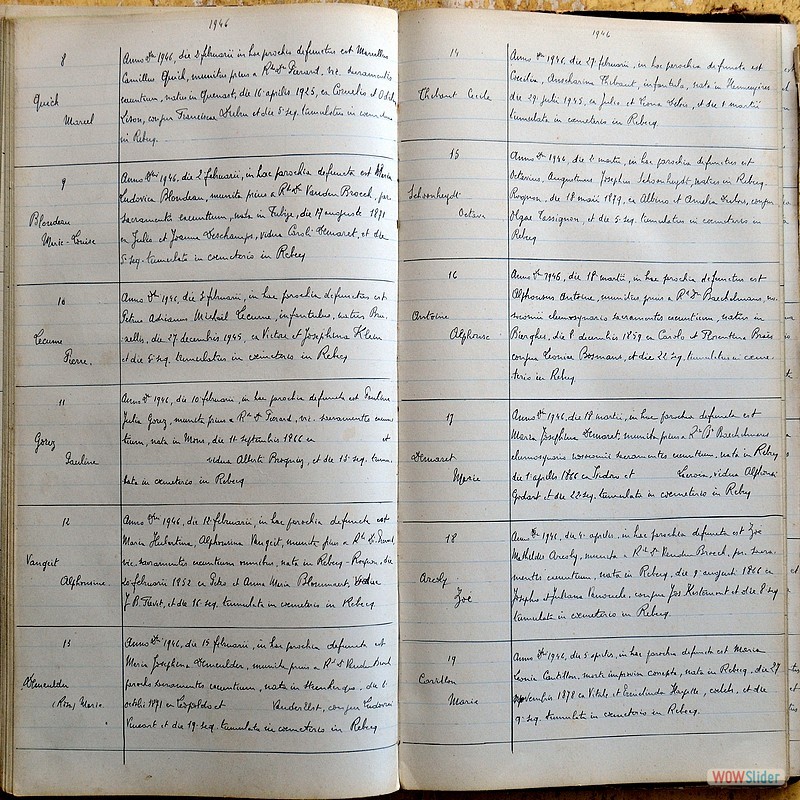 1946
8
Quick
Marcel
Anno Dni 1946, die 2 februarii in hac parochia defunctus est Marcellus
Camillus Quick, munitus prius a Rdo D. Pierard, vic. sacramentis
exeuntium, natus in Quenast, die 16 aprilis 1925, ex Cornelio et
conjux Francisca et die 5 seq. tumulatus in
in Rebecq.
9
Blondeau
Marie-Louise
Anno Dni 1946, die 2 februarii, in hac parochia defuncta est Maria
Ludovica Blondeau, munita prius a Rdo D. Vanden Broeck, par.
sacramentis exeuntium, nata in Tubize, die 17 augusti 1871
ex Julio et Joanna Deschamps, vidua Caroli Demaret, et die
5 seq. tumulata in coemeterio in Rebecq
10
Lecume
Pierre.
Anno Dni 1946, die 3 februarii, in hac parochia defunctus est
Petrus Adrianus Michael Lecume, infantulus, natus Bru-
xellis, die 27 decembris 1945, ex Victore et Josephina Klein
et die 5 seq. tumulatus in coemeterio in Rebecq
11
Gorez
Pauline
Anno Dni 1946, die 10 februarii, in hac parochia defuncta est Paulina
Julia Gorez, munita prius a Rdo D. Pierard, vic. sacramentis exeun-
tium, nata in Mons, die 14 septembris 1866 ex et
vidua Alberti et die 13 seq. tumu-
lata in coemeterio in Rebecq.
12
Vangeit
Alphonsine
Anno Dni 1946, die 12 februarii, in hac parochia defuncta est
Maria Hubertina, Alphonsina Vangeit, munita prius a Rdo D. Pierard
vic. sacramentis exeuntium omnibus, nata in Rebecq-Rognon, die
20 februarii ex Petro et Anna Maria vidua
J. B. et die 16 seq. tumulata in coemeterio in Rebecq
13
Demeulder
Maria
Anno Dni 1946, die 15 februarii, in hac parochia defuncta est
Maria Josephina Demeulder, munita prius a Rdo D. Vanden Broeck
sacramentis exeuntium, nata in die
octobris 1871 ex Leopoldo et VanderElst, conjux Ludovici
Vincart et die 19 seq. tumulata in coemeterio in Rebecq.
1946
14
Thibaut Cecile
Anno Dni 1946, die 27 februarii, in hac parochia defuncta est
Cecilia, Thibaut, infantula, nata in Hennuyères
die 29 julii 1945, ex Julio et et die 1 martii
tumulata in coemeterio in Rebecq
15
Schoonheydt
Octave
Anno Dni 1946, die 2 martii, in hac parochia defunctus est
Octavius, Augustinus Josephus Schoonheydt, natus in Rebecq-
Rognon, die 18 maii 1879, ex Albino et Amelia conjux
Olgae Tassignon, et die 5 seq. tumulatus in coemeterio in
Rebecq
16
Antoine
Alphonse
Anno Dni 1946, die 18 martii, in hac parochia defunctus est
Alphonsus Antoine, munitus prius a Rdo D. Baeckelmans,
eleemosynario sacramentis exeuntium, natus in
Bierghes, die 8 decembris 1859 ex Carolo et Florentina
conjux Leoniae Bosmans, et die 22 seq. tumulatus in coeme-
terio in Rebecq.
17
Demaret
Marie
Anno Dni 1946, die 18 martii, in hac parochia defuncta est
Maria Josephina Demaret, munita prius a Rdo D. Baeckelmans
eleemosynario sacramentis exeuntium, nata in Rebecq
die 1 aprilis 1866 ex Isidoro et Lacroix, vidua Alphonsi
Godart et die 22 seq. tumulata in coemeterio in Rebecq
18
Zoé
Anno Dni 1946, die 4 aprilis, in hac parochia defuncta est Zoé
Mathildis munita a Rdo D. Vanden Broeck, par. sacra-
mentis exeuntium, nata in Rebecq, die 9 augusti 1866 ex
Josepho et Juliana conjux Jos et die 8 seq.
tumulata in coemeterio in Rebecq.
19
Marie
Anno Dni 1946, die 5 aprilis, in hac parochia defuncta est Maria
Leonia morte improvisa nata in Rebecq, die 27
novembris 1878 ex Vitale et coelebs, et die
9 seq. tumulata in coemeterio in Rebecq.
WOWSlider